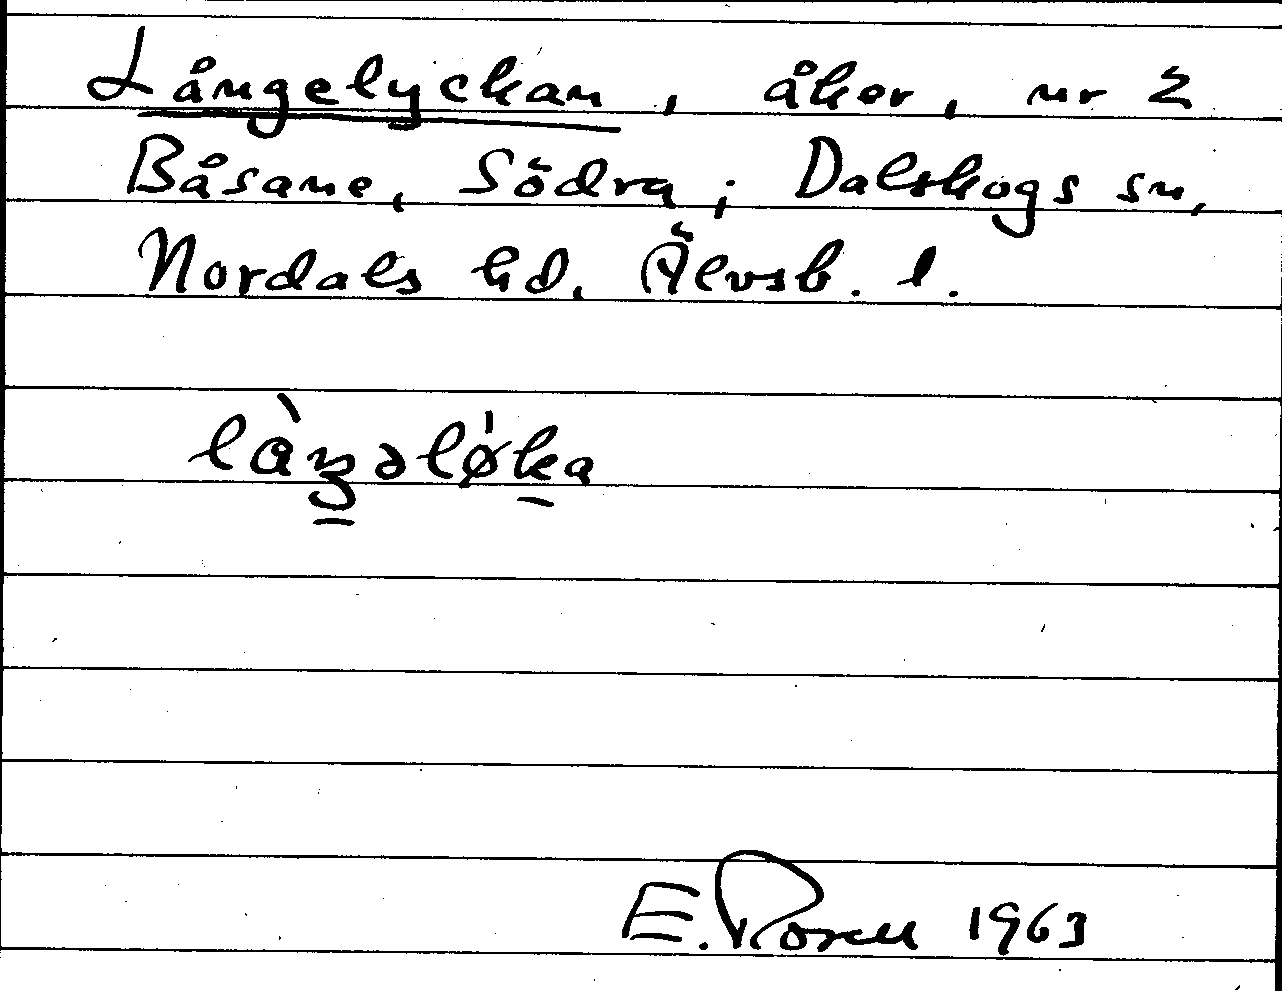 Långelyckan, åker, nr 2
Båsane, Södra; Dalskogs sn,
Nordals hd. Älvsb. l.
làŋəlø̍ka
E. 1963